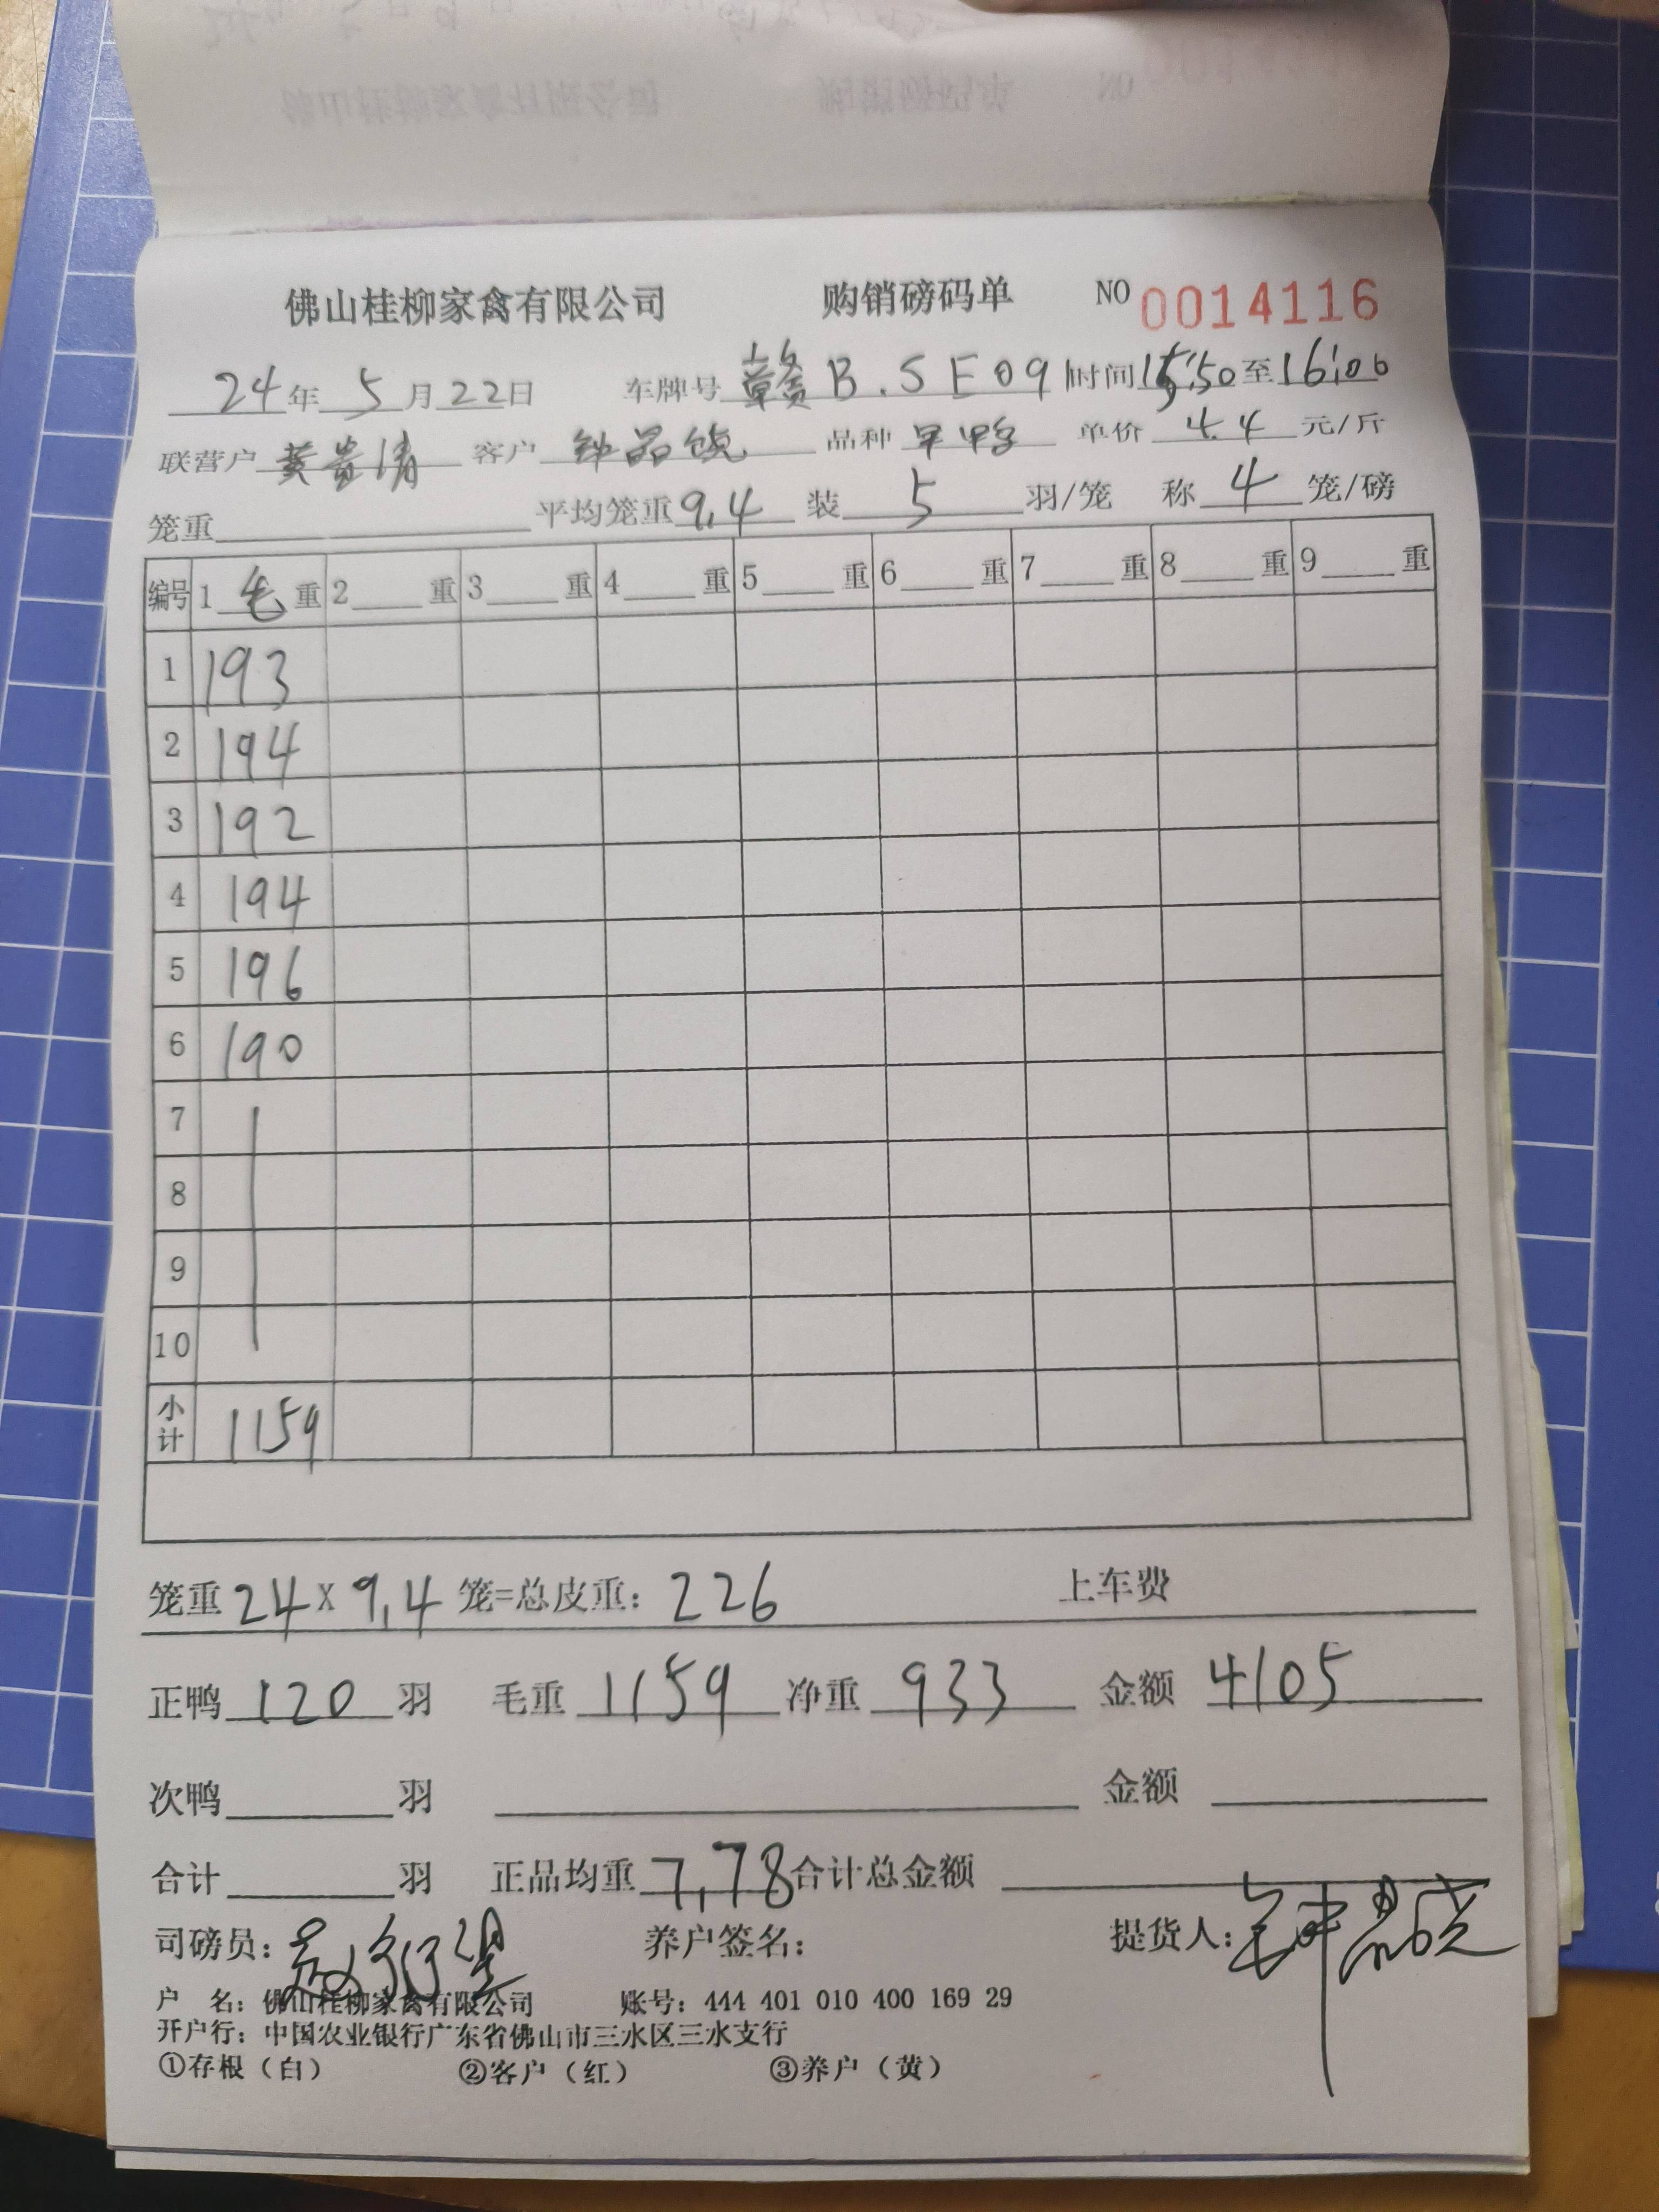 佛山桂柳家禽有限公司 购销磅码单 NO 0014116
24年5月22日 车牌号 赣B.5E09 时间15:50至16:00
联营户 黄贵清 客户 钟品饶 品种 旱鸭 单价 4.4 元/斤
笼重 平均笼重 9.4 装 5 羽/笼 称 4 笼/磅
编号 1 毛 重 2 重 3 重 4 重 5 重 6 重 7 重 8 重 9 重
1 193
2 194
3 192
4 194
5 196
6 190
7
8
9
10
小计 1159
笼重 24 X 9.4 笼=总皮重: 226 上车费
正鸭 120 羽 毛重 1159 净重 933 金额 4105
次鸭 羽 金额
合计 羽 正品均重 7.78 合计总金额
司磅员: 养户签名: 提货人:
户 名: 佛山桂柳家禽有限公司 账号: 444 401 010 400 169 29
开户行: 中国农业银行广东省佛山市三水区三水支行
①存根(白) ②客户(红) ③养户(黄)